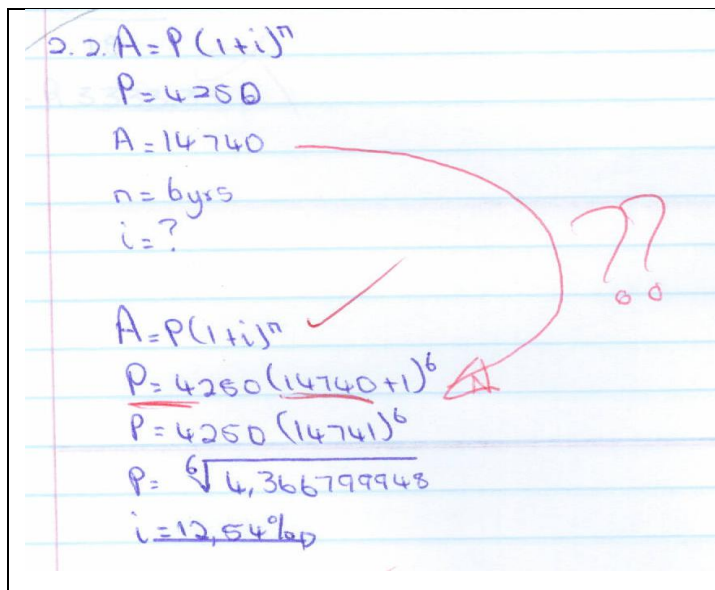 2.2. A = P(1+i)ⁿ
P = 4250
A = 14740
n = 6yrs
i = ?
??
A = P(1+i)ⁿ
P = 4250(14740+1)⁶
P = 4250(14741)⁶
P = ⁶√4,366799948
i = 12,54%